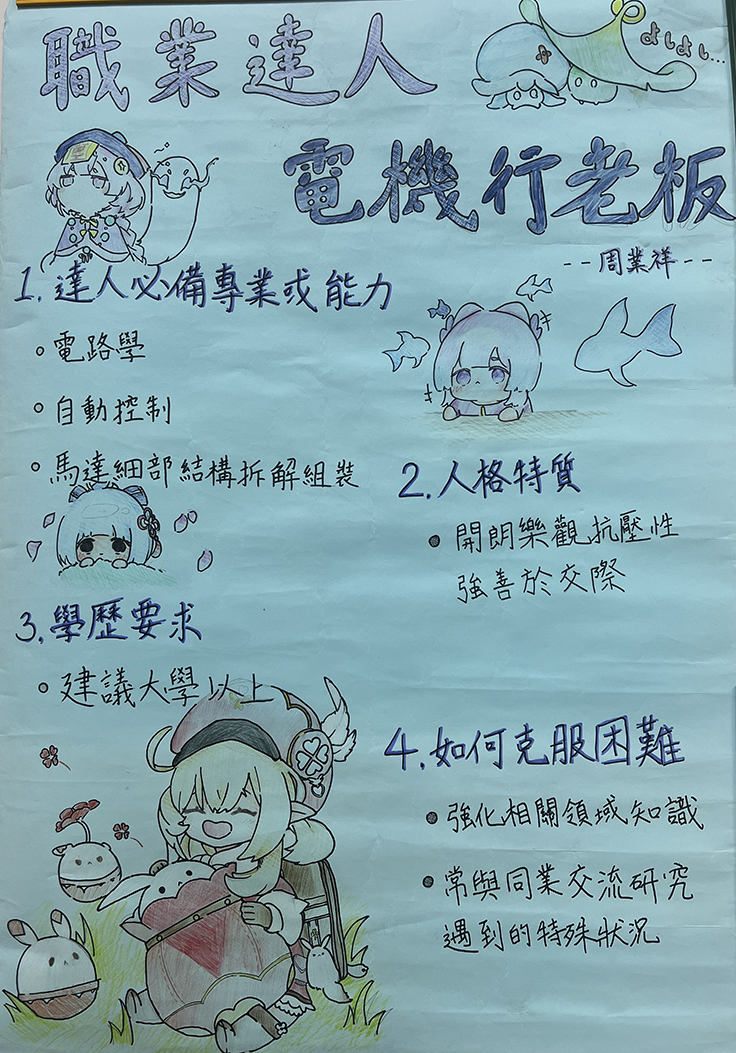 職業達人
よしよし...
電機行老板
--周業祥--
1.達人必備專業或能力
電路學
自動控制
馬達細部結構拆解組裝
2.人格特質
開朗樂觀抗壓性
強善於交際
3.學歷要求
建議大學以上
4.如何克服困難
強化相關領域知識
常與同業交流研究
遇到的特殊狀況